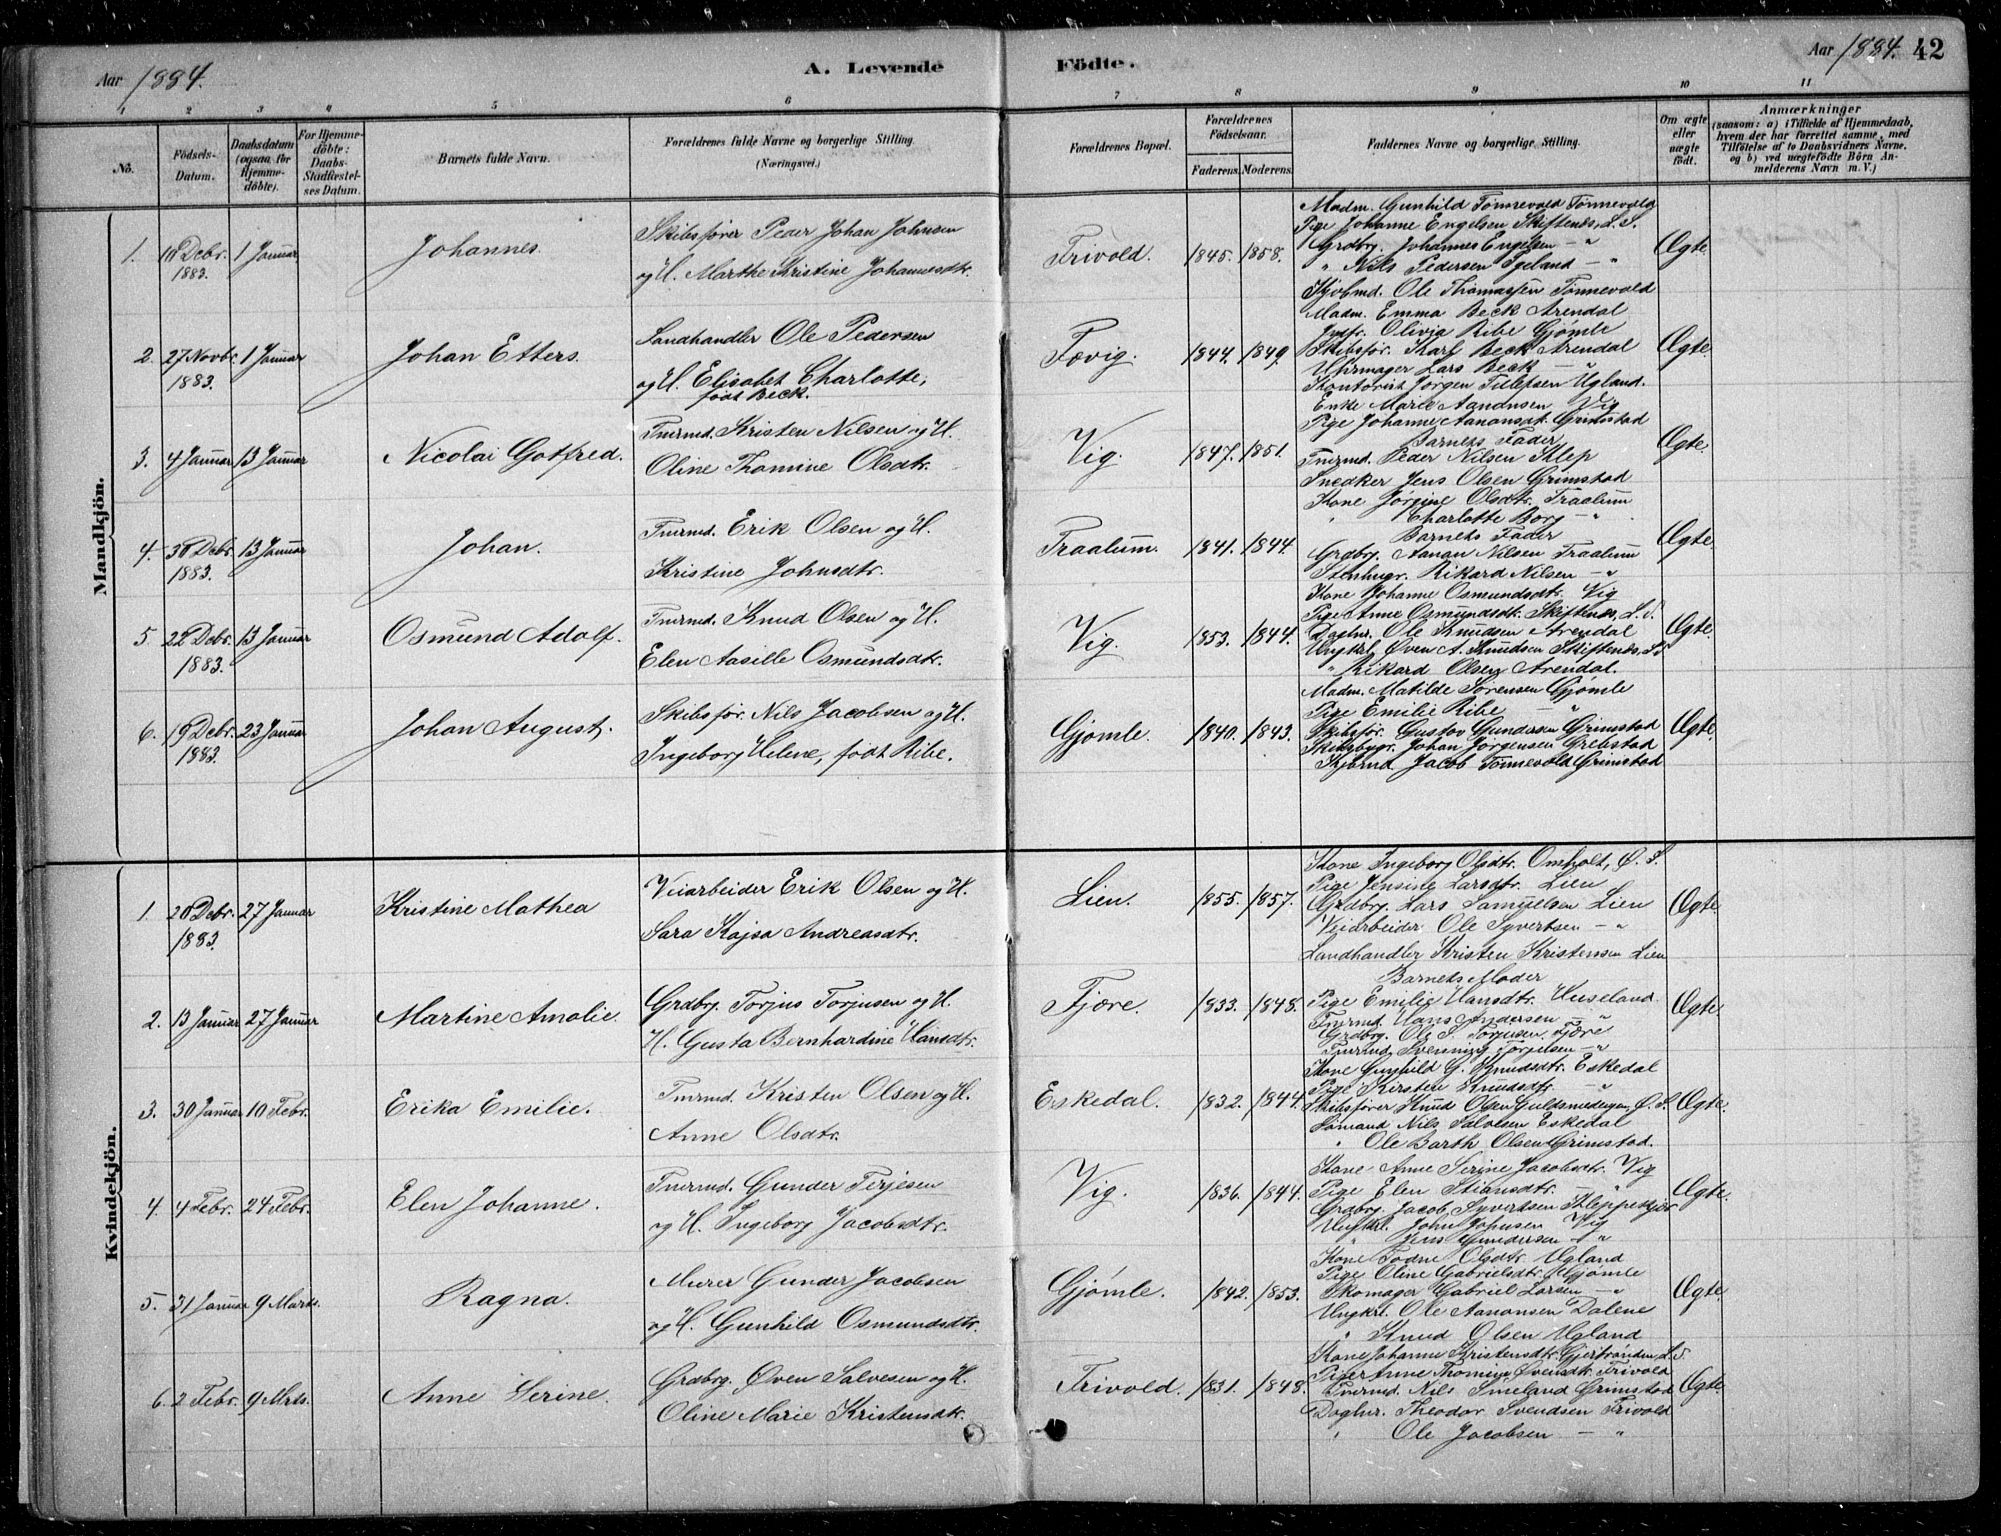 Aar 1884.
A. Levende Födte.
Aar 1884. 42
1 2 3 4 5 6 7 8 9 10 11
No.
Födsels-Datum.
Daabsdatum (ogsaa for Hjemmedöbte).
For Hjemmedöbte: Daabs-Stadfæstelses Datum.
Barnets fulde Navn.
Forældrenes fulde Navne og borgerlige Stilling. (Næringsvei.)
Forældrenes Bopæl.
Forældrenes Födselsaar.
Faderens. Moderens.
Faddernes Navne og borgerlige Stilling.
Om ægte eller uægte födt.
Anmærkninger
(saasom: a) i Tilfælde af Hjemmedaab, hvem der har forrettet samme, med Tilföielse af to Daabsvidners Navne. og b) ved uægtefödte Börn Anmelderens Navn m. V.)
Mandkjön.
1. 18 Debr. 1883. 1 Januar Johannes.
Skibsfører Peder Johan Johnsen
og H. Marthe Kristine Johannesdtr.
Trivold. 1845. 1858.
Madm. Gunhild Tønnevold Tønnevold
Pige Johanne Engelsen Skiftenes, L. S.
Grdbrg. Johannes Engelsen — "
" Nils Pedersen Igeland — "
Kjøbmd. Ole Thomassen Tønnevold
Ægte.
2. 27 Novbr. 1883. 1 Januar Johan Etters.
Landhandler Ole Pedersen
og H. Elisabet Charlotte,
født Beck.
Fævig. 1844. 1849.
Madm. Emma Beck Arendal
Jmfr. Olivia Ribe Gjømle
Skibsfør. Karl Beck Arendal
Uhrmager Lars Beck — "
Kontorist Jørgen Tellefsen Ugland.
Ægte.
3. 4 Januar 13 Januar Nicolai Gotfred.
Tmrmd. Kristen Nilsen og H.
Oline Thomine Olsdtr.
Vig. 1847. 1851.
Enke Marie Aanonsen Vig
Pige Johanne Aanonsdt. Grimstad
Barnets Fader
Tmrmd. Peder Nilsen Klep
Snedker Jens Olsen Grimstad
Ægte.
4. 30 Debr. 1883. 13 Januar Johan.
Tmrmd. Erik Olsen og H.
Kristine Johnsdtr.
Traalum. 1841. 1844.
Kone Jørgine Olsdtr. Traalum
" Charlotte Borg — "
Barnets Fader
Grdbrg. Aanan Nilsen Traalum
Stenhugr. Rikard Nilsen — "
Ægte.
5 22 Debr. 1883. 13 Januar Osmund Adolf.
Tmrmd. Knud Olsen og H.
Elen Aasille Osmundsdtr.
Vig. 1853. 1844.
Kone Johanne Osmundsdtr. Vig
Pige Anne Osmundsdtr. Skiftenes, L. S.
Dagbr. Ole Knudsen Arendal
Ungkrl. Øven A. Knudsen Skiftenes, L. S
" Rikard Olsen Arendal.
Ægte.
6. 19 Debr. 1883. 23 Januar Johan August.
Skibsfør. Nils Jacobsen og H.
Ingeborg Helene, født Ribe.
Gjømle. 1840. 1843.
Madm. Matilde Sørensen Gjømle
Pige Emilie Ribe — "
Skibsfør. Gustav Gundersen Grimstad
Skibsbygr. Johan Jørgensen Grefstad
Kjømd. Jacob Tønnevold Grimstad
Ægte.
Kvindekjön.
1. 20 Debr. 1883. 27 Januar Kristine Mathea
Veiarbeider Erik Olsen og H.
Sara Kajsa Andreasdtr.
Lien. 1855. 1857.
Kone Ingeborg Olsdtr. Omholt, Ø. S.
Pige Jensine Larsdtr. Lien
Grdbrg. Lars Samuelsen Lien
Veiarbeider Ole Syvertsen — "
Landhandler Kristen Kristensen Lien
Ægte
2. 13 Januar 27 Januar Martine Amalie.
Grdbrg. Torjus Torjusen og H.
H. Gusta Bernhardine Hansdtr.
Fjære. 1833. 1848.
Barnets Moder
Pige Emilie Hansdtr. Huseland.
Tmrmd. Hans Andersen — "
Grdbrg. Ole S. Torjusen. Fjære
Tmrmd. Svenning Torjusen — "
Ægte.
3. 30 Januar 10 Febr. Erika Emilie.
Tmrmd. Kristen Olsen og H.
Anne Olsdtr.
Eskedal. 1832. 1844.
Kone Gunhild G. Knudsdtr. Eskedal
Pige Kirsten Knudsdtr. — "
Skibsfører Knud Olsen Guldsmedengen, Ø. S.
Sømand Nils Salvesen Eskedal
" Ole Barth Olsen Grimstad.
Ægte.
4. 4 Febr. 24 Febr. Elen Johanne.
Tmrmd. Gunder Terjesen
og H. Ingeborg Jacobsdtr.
Vig. 1836. 1844.
Kone Anne Serine Jacobsdtr. Vig
Pige Elen Stiansdtr. — "
Grdbrg. Jacob Syvertsen Kleppekjær
Ungkrl. John Johnsen Vig
" Jens Gundersen — "
Ægte.
5. 31 Januar 9 Marts. Ragna.
Murer Gunder Jacobsen
og H. Gunhild Osmundsdtr.
Gjømle. 1842. 1853.
Kone Todne Olsdtr. Ugland
Pige Oline Gabrielsdtr. Gjømle
Skomager Gabriel Larsen — "
Ungkrl. Ole Aanonsen Dalene
" Knud Olsen Ugland
Ægte.
6. 2 Febr. 9 Mrts. Anne Serine.
Grdbrg. Øven Salvesen og H.
Oline Marie Kristensdtr.
Trivold. 1831. 1848.
Kone Johanne Kristensdtr. Gjertrønden, L. S.
Pige Anne Thomine Øvensdtr. Trivold
Tmrmd. Nils Smeland Grimstad
Dagbr. Theodor Svendsen Trivold
" Ole Jacobsen — "
Ægte.